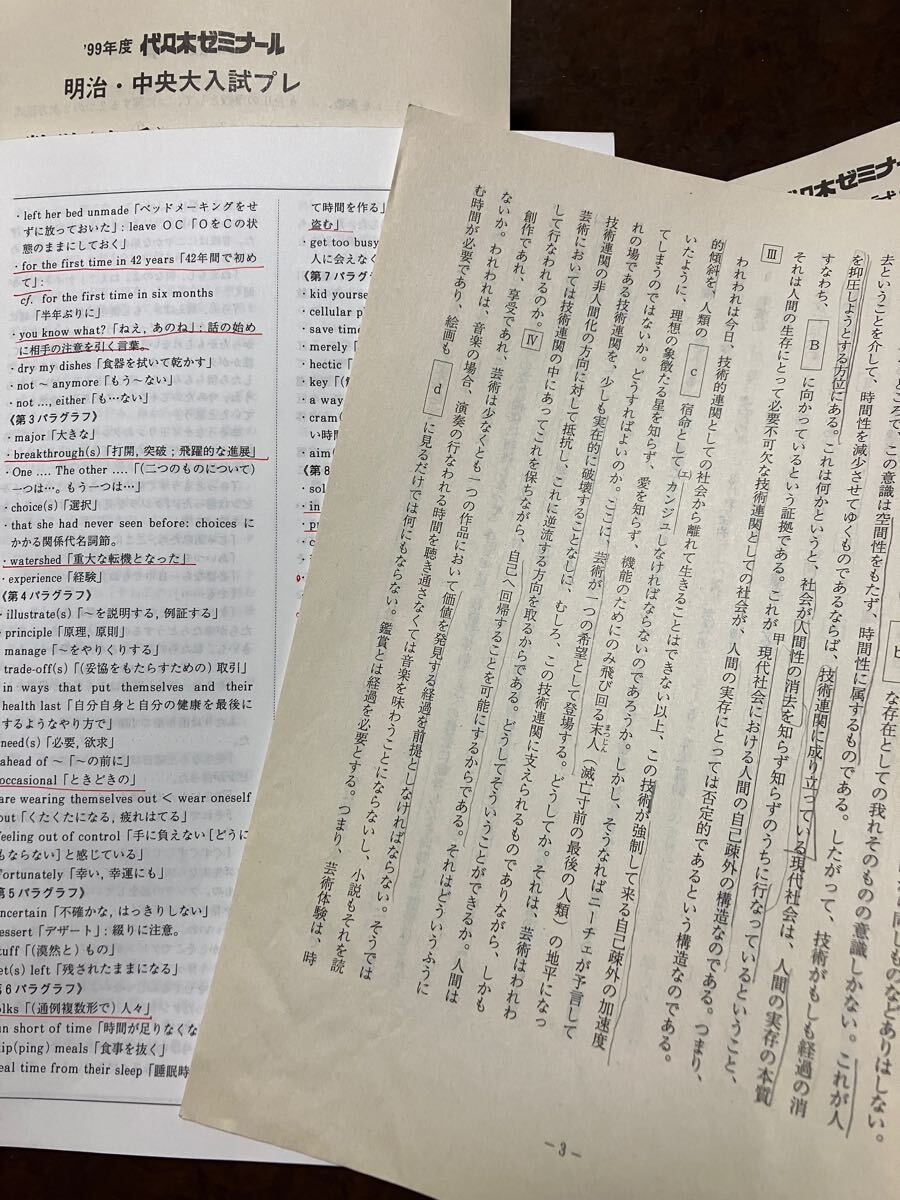 '99年度 代々木ゼミナール
明治・中央大入試プレ
・left her bed unmade「ベッドメーキングをせ
ずに放っておいた」: leave O C「OをCの状
態のままにしておく」
・for the first time in 42 years「42年間で初め
て」:
cf. for the first time in six months
「半年ぶりに」
・you know what?「ねえ, あのね」: 話の始め
に相手の注意を引く言葉。
・dry my dishes「食器を拭いて乾かす」
・not ~ anymore「もう~ない」
・not …, either「も…ない」
《第3パラグラフ》
・major「大きな」
・breakthrough(s)「打開, 突破 ; 飛躍的な進展」
・One …. The other ….「(二つのものについて)
一つは…。もう一つは…」
・choice(s)「選択」
・that she had never seen before: choices に
かかる関係代名詞節。
・watershed「重大な転機となった」
・experience「経験」
《第4パラグラフ》
・illustrate(s)「~を説明する, 例証する」
・principle「原理, 原則」
manage「~をやりくりする」
trade-off(s)「(妥協をもたらすための) 取引」
in ways that put themselves and their
health last「自分自身と自分の健康を最後に
するようなやり方で」
need(s)「必要, 欲求」
ahead of ~「~の前に」
occasional「ときどきの」
are wearing themselves out < wear oneself
out「くたくたになる, 疲れはてる」
feeling out of control「手に負えない[どうに
もならない]と感じている」
fortunately「幸い, 幸運にも」
第5パラグラフ》
ncertain「不確かな, はっきりしない」
essert「デザート」: 綴りに注意。
tuff「(漠然と) もの」
et(s) left「残されたままになる」
6パラグラフ》
olks「(通例複数形で) 人々」
un short of time「時間が足りなくな
ip(ping) meals「食事を抜く」
eal time from their sleep「睡眠時
て時間を作る」
盗む」
・get too busy
人に会えなく
《第7パラグラフ
・kid yourse
・cellular p
・save time
・merely「
・hectic「
・key「(
・a way
・cram(
い時間
・aim(
《第8
・sol
・in
代々木ゼミナー
な存在としての我れそのものの意識しかない。これが人
去ということを介して、時間性を減少させてゆくものであるならば、技術連関に成り立っている現代社会は、人間の実存の本質
を抑圧しようとする方位にある。これは何かというと、社会が人間性の消去を知らず知らずのうちに行なっているということ、
すなわち、 B に向かっているという証拠である。これが甲現代社会における人間の自己疎外の構造なのである。つまり、
それは人間の生存にとって必要不可欠な技術連関としての社会が、人間の実存にとっては否定的であるという構造なのである。
Ⅲ
われわれは今日、技術的連関としての社会から離れて生きることはできない以上、この技術が強制して来る自己疎外の加速度
的傾斜を、人類の c 宿命として(エ)カンジュしなければならないのであろうか。しかし、そうなればニーチェが予言して
いたように、理想の象徴たる星を知らず、愛を知らず、機能のためにのみ飛び回る末人(まつじん)(滅亡寸前の最後の人類)の地平になっ
てしまうのではないか。どうすればよいのか。ここに、芸術が一つの希望として登場する。どうしてか。それは、芸術はわれわ
れの場である技術連関を、少しも実在的に破壊することなしに、むしろ、この技術連関に支えられるものでありながら、しかも
技術連関の非人間化の方向に対して抵抗し、これに逆流する方向を取るからである。どうしてそういうことができるか。人間は
芸術においては技術連関の中にあってこれを保ちながら、自己へ回帰することを可能にするからである。それはどういうふうに
して行なわれるのか。 Ⅳ
創作であれ、享受であれ、芸術は少なくとも一つの作品において価値を発見する経過を前提としなければならない。そうでは
ないか。われわれは、音楽の場合、演奏の行なわれる時間を聴き通さなくては音楽を味わうことにならないし、小説もそれを読
む時間が必要であり、絵画も d に見るだけでは何にもならない。鑑賞とは経過を必要とする。つまり、芸術体験は、時
－3－